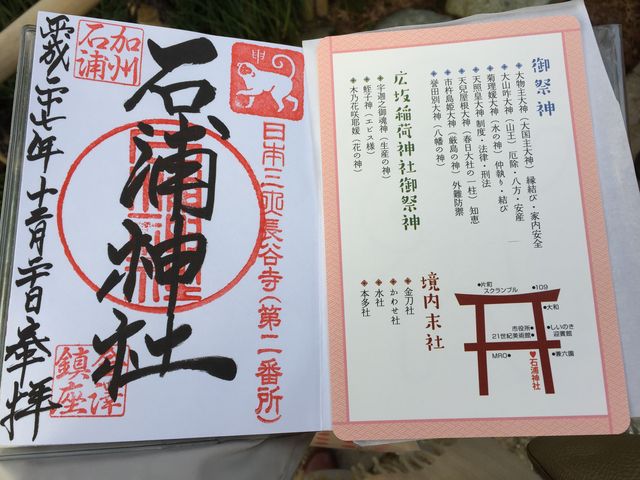 日本三所長谷寺(第二番所)
申
加州
石浦
石浦神社
金澤
鎮座
平成二十七年十二月二日奉拝
御祭神
大物主大神(大国主大神)縁結び・家内安全
大山咋大神(山王)厄除・八方・安産
菊理媛大神(水の神)仲執り・結び
天照皇大神 制度・法律・刑法
天兒屋根大神(春日大社の一柱)知恵
市杵島姫大神(厳島の神)外難防禦
誉田別大神(八幡の神)
広坂稲荷神社御祭神
宇迦之御魂神(生産の神)
蛭子神(エビス様)
木乃花咲耶媛(花の神)
境内末社
金刀社
かわせ社
水社
本多社
片町
スクランブル
109
大和
市役所
21世紀美術館
しいのき
迎賓館
MRO
石浦神社
兼六園